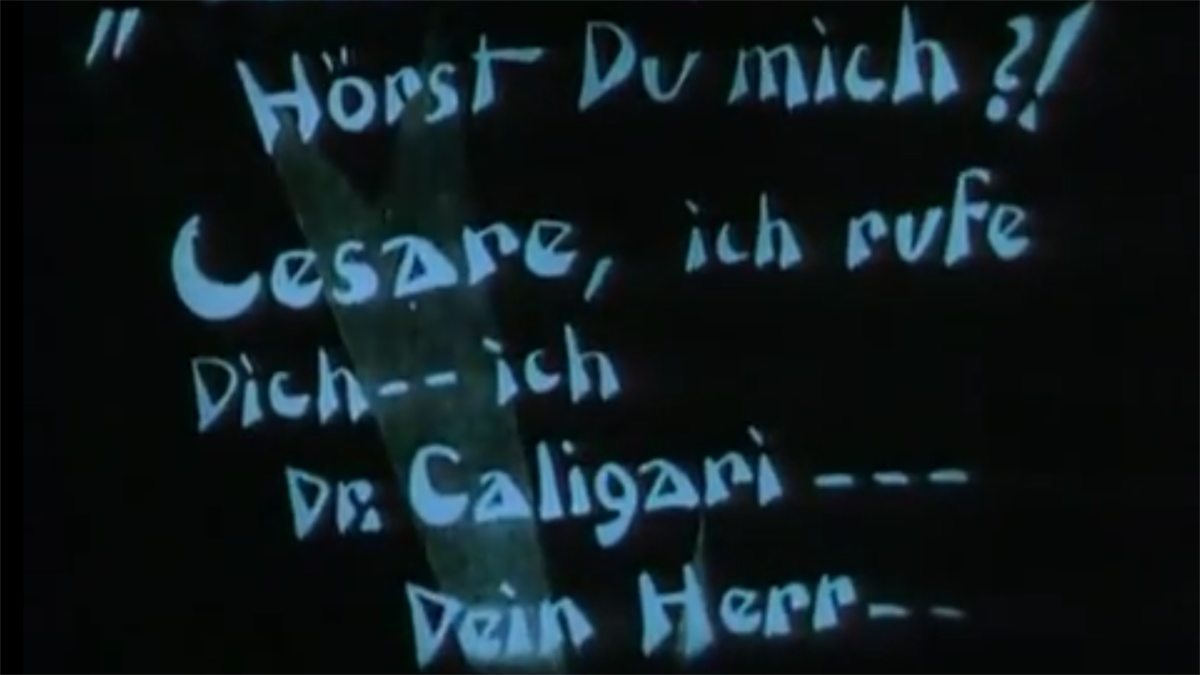 " Hörst Du mich ?!
Cesare, ich rufe
Dich -- ich
Dr. Caligari ---
Dein Herr --